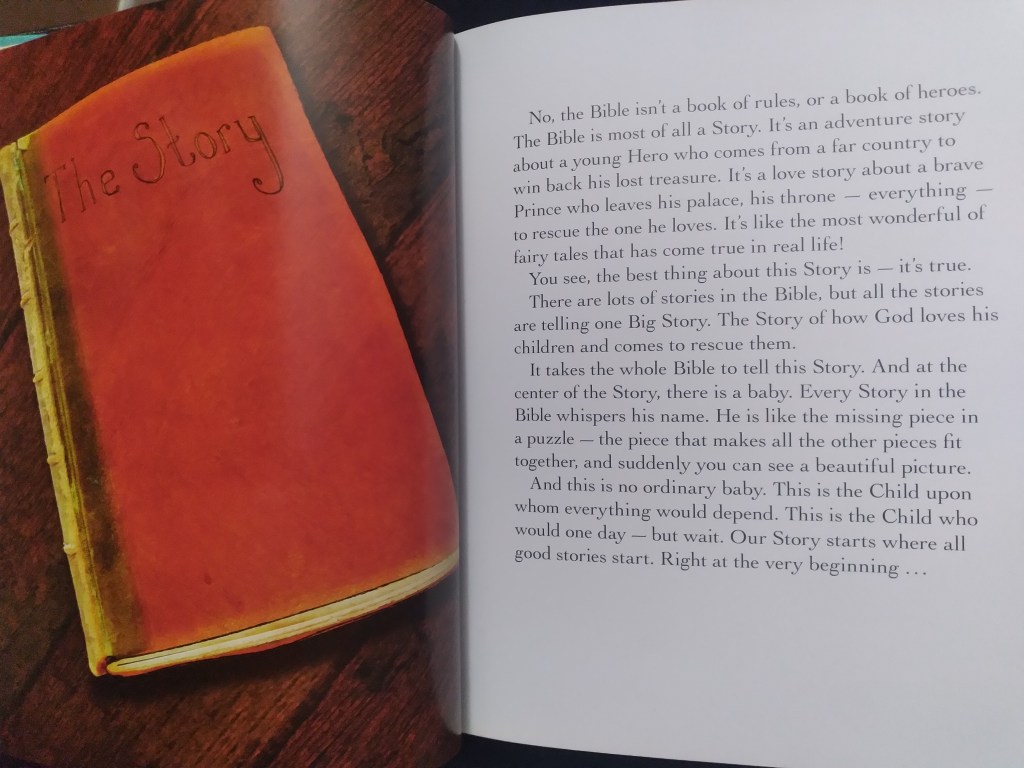 The Story
No, the Bible isn't a book of rules, or a book of heroes.
The Bible is most of all a Story. It's an adventure story
about a young Hero who comes from a far country to
win back his lost treasure. It's a love story about a brave
Prince who leaves his palace, his throne — everything —
to rescue the one he loves. It's like the most wonderful of
fairy tales that has come true in real life!
You see, the best thing about this Story is — it's true.
There are lots of stories in the Bible, but all the stories
are telling one Big Story. The Story of how God loves his
children and comes to rescue them.
It takes the whole Bible to tell this Story. And at the
center of the Story, there is a baby. Every Story in the
Bible whispers his name. He is like the missing piece in
a puzzle — the piece that makes all the other pieces fit
together, and suddenly you can see a beautiful picture.
And this is no ordinary baby. This is the Child upon
whom everything would depend. This is the Child who
would one day — but wait. Our Story starts where all
good stories start. Right at the very beginning …